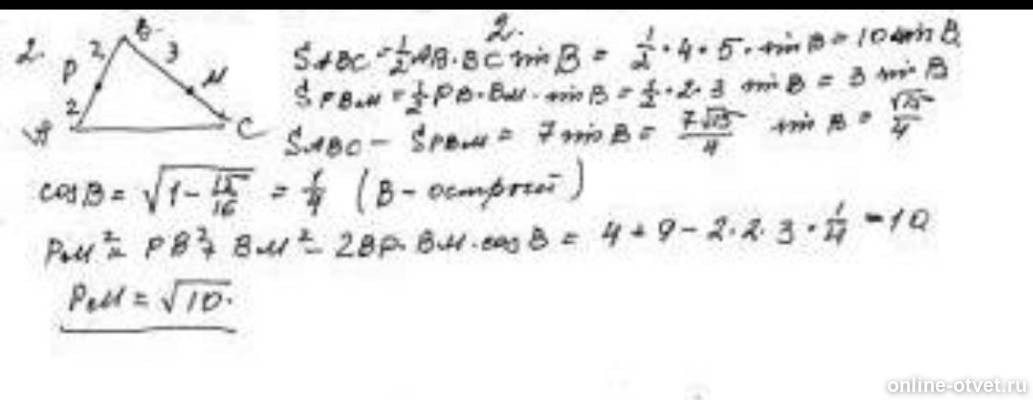 2.
2.
B
2 3
P M
2
A C
S ABC = 1/2 AB · BC sin B = 1/2 · 4 · 5 · sin B = 10 sin B
S PBM = 1/2 PB · BM · sin B = 1/2 · 2 · 3 sin B = 3 sin B
S ABC − S PBM = 7 sin B = 7√15/4 sin B = √15/4
cos B = √(1 − 15/16) = 1/4 (B – острый)
PM² = PB² + BM² − 2BP · BM · cos B = 4 + 9 − 2·2·3·1/4 = 10
PM = √10.
online-otvet.ru